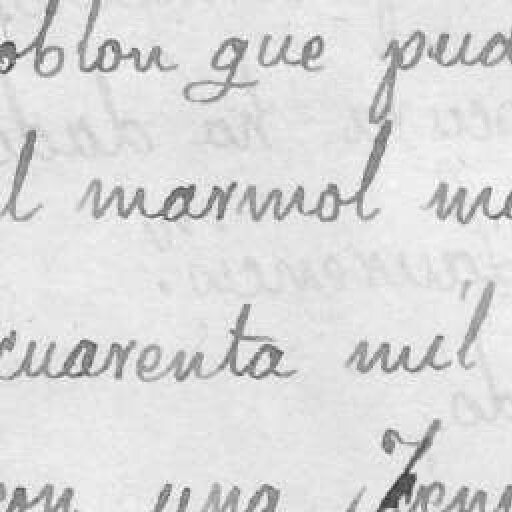 oblon que pud
l marmol ma
cuarenta mil
con una